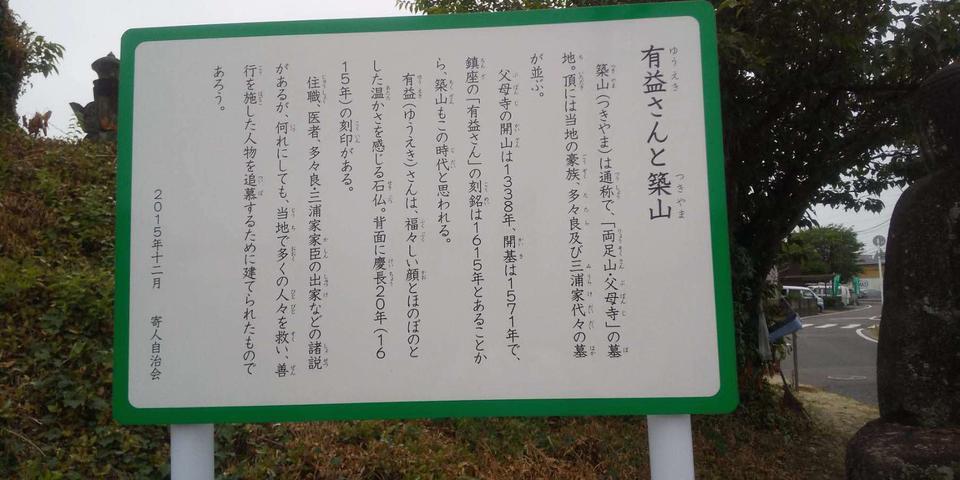 有益さんと築山
築山(つきやま)は通称で、「両足山・父母寺」の墓
地。頂には当地の豪族、多々良及び三浦家代々の墓
が並ぶ。
父母寺の開山は1338年、開基は1571年で、
鎮座の「有益さん」の刻銘は1615年とあることか
ら、築山もこの時代と思われる。
有益(ゆうえき)さんは、福々しい顔とほのぼのと
した温かさを感じる石仏。背面に慶長20年(16
15年)の刻印がある。
住職、医者、多々良・三浦家家臣の出家などの諸説
があるが、何れにしても、当地で多くの人々を救い、善
行を施した人物を追慕するために建てられたもので
あろう。
2015年十二月　寄人自治会